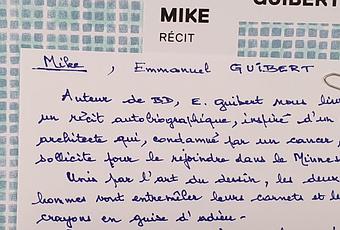 GUIBERT
MIKE
RÉCIT
Mike, Emmanuel GUIBERT
Auteur de BD, E. Guibert nous
un récit autobiographique, inspiré d'un
architecte qui, condamné par un cancer,
sollicite pour le rejoindre dans le
Unis par l'art du dessin, les deux
hommes vont entremêler leurs carnets et
crayons en guise d'adieu.